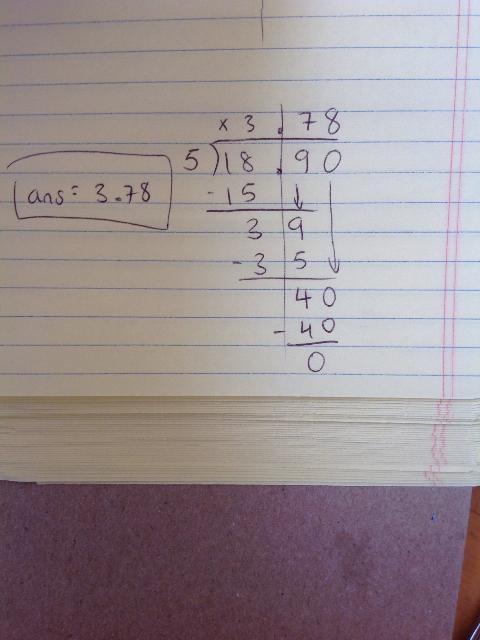 x 3 . 78
5 ) 18 . 90
ans = 3.78
- 15
3 9
- 3 5
40
- 40
0